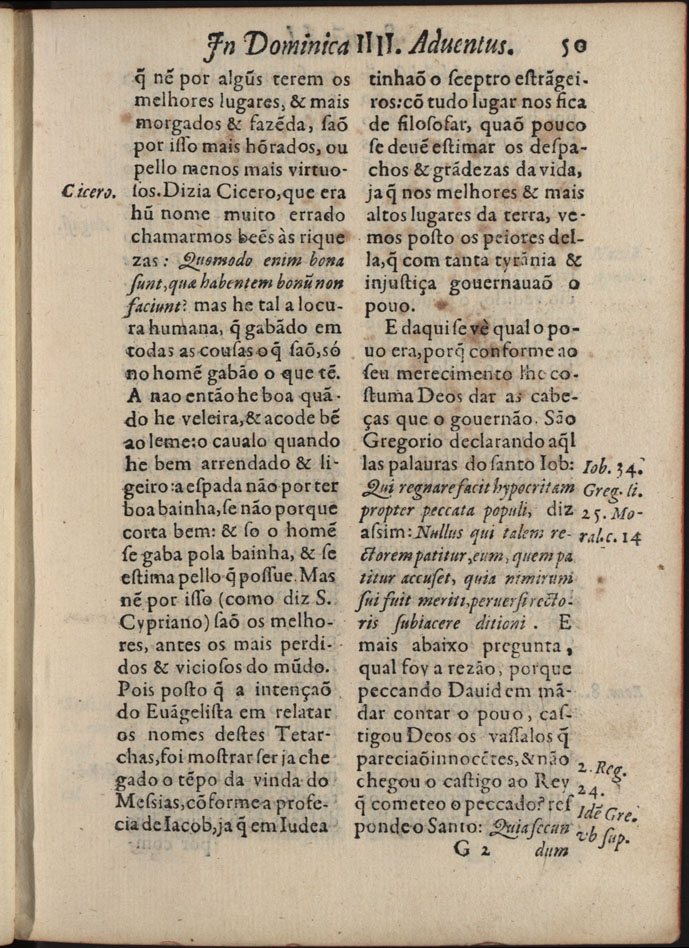 In Dominica IIII. Aduentus. 50
q̃ nẽ por algũs terem os
melhores lugares, & mais
morgados & fazẽda, ſaõ
por iſſo mais hõrados, ou
pello menos mais virtuo-
Cicero.
ſos. Dizia Cicero, que era
hũ nome muito errado
chamarmos beẽs às rique
zas: Quomodo enim bona
ſunt, quæ habentem bonũ non
faciunt? mas he tal a locu-
ra humana, q̃ gabãdo em
todas as couſas o q̃ ſaõ, só
no homẽ gabão o que tẽ.
A nao então he boa quã-
do he veleira, & acode bẽ
ao leme: o caualo quando
he bem arrendado & li-
geiro: a eſpada não por ter
boa bainha, ſe não porque
corta bem: & ſo o homẽ
ſe gaba pola bainha, & ſe
eſtima pello q̃ poſſue. Mas
nẽ por iſſo (como diz S.
Cypriano) ſaõ os melho-
res, antes os mais perdi-
dos & vicioſos do mũdo.
Pois poſto q̃ a intençaõ
do Euãgeliſta em relatar
os nomes deſtes Tetar-
chas, foi moſtrar ſer ja che
gado o tẽpo da vinda do
Meſsias, cõforme a profe-
cia de Iacob, ja q̃ em Iudea
tinhaõ o ſceptro eſtrãgei-
ros: cõ tudo lugar nos fica
de filoſofar, quaõ pouco
ſe deuẽ eſtimar os deſpa-
chos & grãdezas da vida,
ja q̃ nos melhores & mais
altos lugares da terra, ve-
mos poſto os peiores del-
la, q̃ com tanta tyrãnia &
injuſtiça gouernauaõ o
pouo.
E daqui ſe vè qual o po-
uo era, porq̃ conforme ao
ſeu merecimento lhe co-
ſtuma Deos dar as cabe-
ças que o gouernão. São
Gregorio declarando aq̃l
las palauras do ſanto Iob:
Qui regnare facit hypocritam
propter peccata populi, diz
aſsim: Nullus qui talem re-
ctorem patitur, eum, quem pa
titur accuſet, quia nimirum
ſui fuit meriti, peruerſi recto-
ris ſubiacere ditioni. E
mais abaixo pregunta,
qual foy a rezão, porque
peccando Dauid em mã-
dar contar o pouo, caſ-
tigou Deos os vaſſalos q̃
pareciaõ innocẽtes, & não
chegou o caſtigo ao Rey
q̃ cometeo o peccado? reſ
ponde o Santo: Quia ſecun
Iob. 34.
Greg. li.
25. Mo-
ral. c. 14
2. Reg.
24.
Idẽ Gre.
vb ſup.
G 2 dum